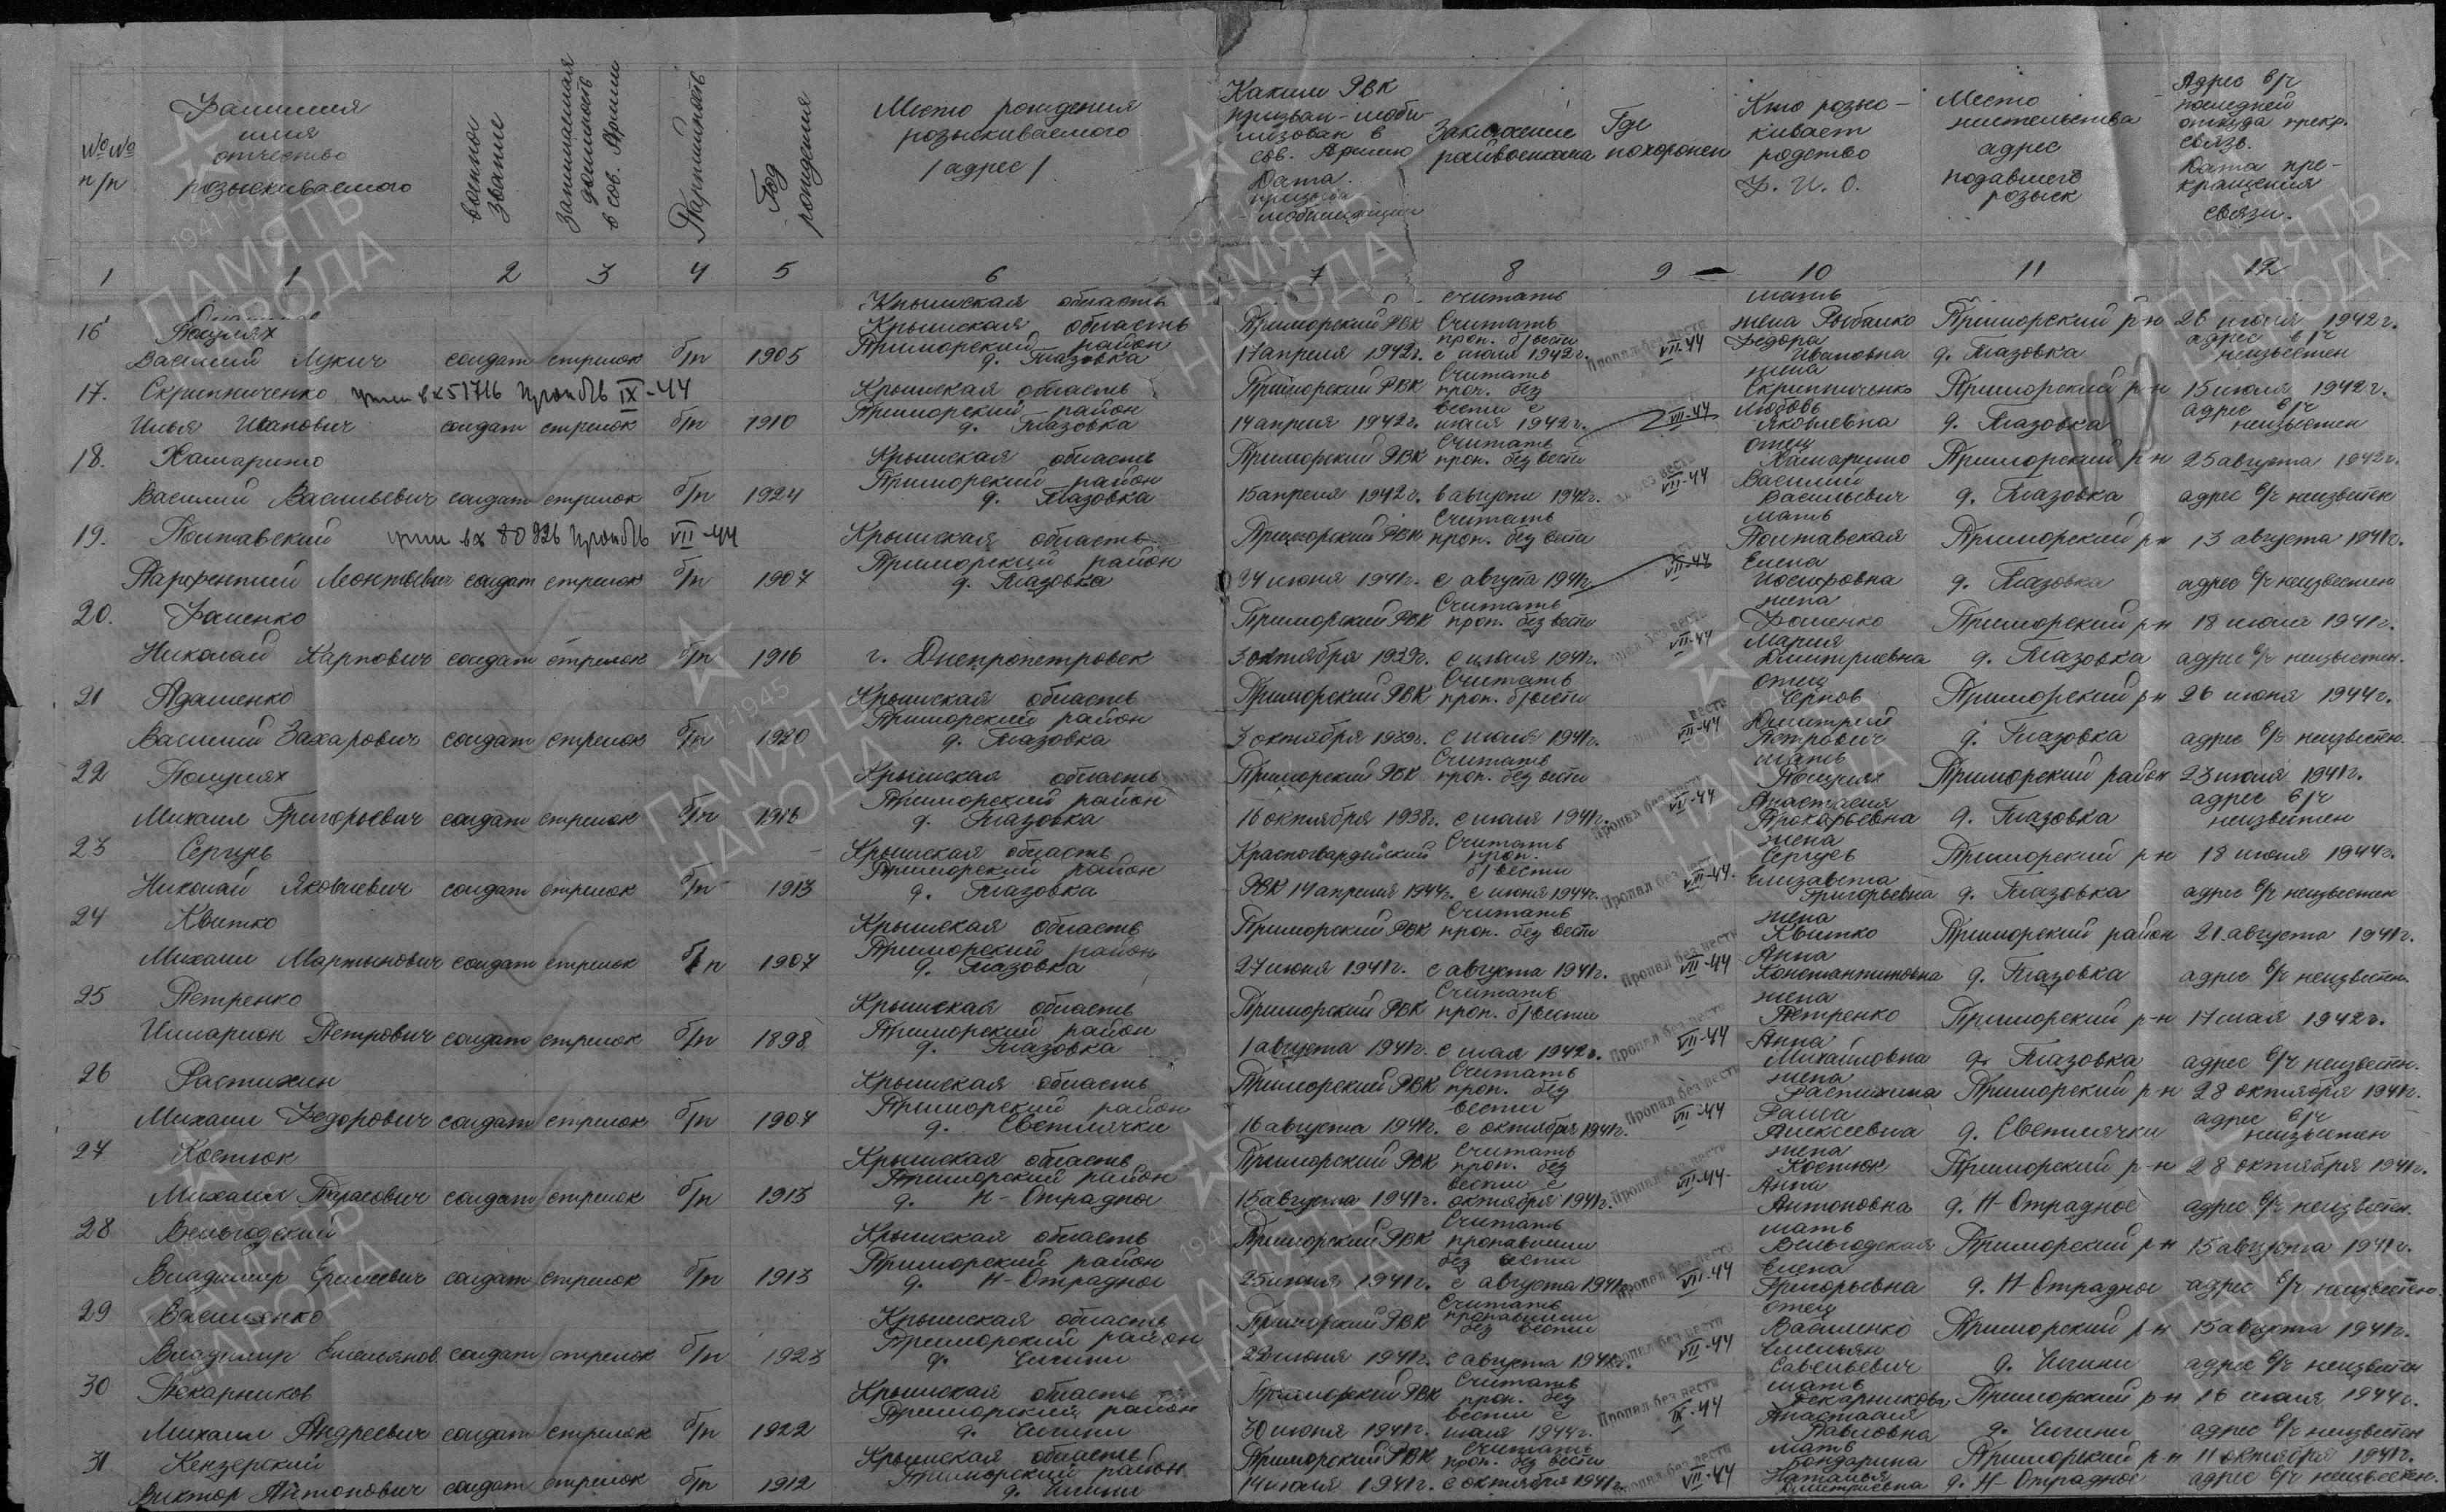 №№ п/п
Фамилия имя отчество розыскиваемого
военное звание
Занимаемая должность в сов. Армии
Партийность
Год рождения
Место рождения розыскиваемого /адрес/
Каким РВК призван-моби-лизован в сов. Армию Дата призыва мобилизации
Заключение райвоенкома
Где похоронен
Кто розыс-кивает родство Ф. И. О.
Место жительства адрес подавшего розыск
Адрес в/ч последней откуда прекр. связь. Дата пре-кращения связи.
1 1 2 3 4 5 6 7 8 9 — 10 11 12
Крымская область считать мать
16 Крымская область Приморский РВК Считать жена Рыбалко Приморский р-н 26 июля 1942 г.
Приморский район проп. б/вести Федора адрес в/ч
Василий Лукич солдат стрелок б/п 1905 д. Тазовка 17 апреля 1942 г. с июля 1942 г. Пропал без вести VII-44 Ивановна д. Тазовка неизвестен
17. Скрипниченко IX-44 Крымская область Приморский РВК Считать проп. без жена Скрипниченко Приморский р-н 15 июля 1942 г.
Приморский район вести с Любовь адрес в/ч
Илья Иванович солдат стрелок б/п 1910 д. Тазовка 14 апреля 1942 г. июля 1942 г. VII-44 Яковлевна д. Тазовка неизвестен
18. Крымская область Приморский РВК Считать проп. без вести отец Приморский р-н 25 августа 1942 г.
Приморский район Василий
Василий Васильевич солдат стрелок б/п 1924 д. Тазовка 15 апреля 1942 г. в августе 1942 г. VII-44 Васильевич д. Тазовка адрес в/ч неизвестен
19. Полтавский VII-44 Крымская область Приморский РВК Считать проп. без вести мать Полтавская Приморский р-н 13 августа 1941 г.
Приморский район Елена
Парфентий Леонтьевич солдат стрелок б/п 1907 д. Тазовка 24 июня 1941 г. с августа 1941 г. VII-43 Иосифовна д. Тазовка адрес в/ч неизвестен
20. Фоменко Приморский РВК Считать проп. без вести жена Фоменко Приморский р-н 18 июля 1941 г.
Мария
Николай Карпович солдат стрелок б/п 1916 г. Днепропетровск 3 октября 1939 г. с июля 1941 г. VII-44 Дмитриевна д. Тазовка адрес в/ч неизвестен.
21 Адаменко Крымская область Приморский РВК Считать проп. б/вести отец Чернов Приморский р-н 26 июня 1944 г.
Приморский район Дмитрий
Василий Захарович солдат стрелок б/п 1920 д. Тазовка 3 октября 1939 г. с июля 1941 г. VII-44 Петрович д. Тазовка адрес в/ч неизвестен.
22 Поцулях Крымская область Приморский РВК Считать проп. без вести мать Поцулях Приморский район 23 июля 1941 г.
Приморский район Анастасия адрес в/ч
Михаил Григорьевич солдат стрелок б/п 1916 д. Тазовка 16 октября 1938 г. с июля 1941 г. Пропал без вести VII-44 Прокофьевна д. Тазовка неизвестен
23 Сергуь Крымская область Красногвардейский Считать проп. жена Приморский р-н 18 июня 1944 г.
Приморский район б/вести Елизавета
Николай Яковлевич солдат стрелок б/п 1913 д. Тазовка РВК 14 апреля 1944 г. с июня 1944 г. Пропал без вести VII-44. Григорьевна д. Тазовка адрес в/ч неизвестен
24 Квитко Крымская область Приморский РВК Считать проп. без вести жена Квитко Приморский район 21 августа 1941 г.
Приморский район Анна
Михаил Мартынович солдат стрелок б/п 1907 д. Тазовка 27 июня 1941 г. с августа 1941 г. Пропал без вести VII-44 Константиновна д. Тазовка адрес в/ч неизвестен.
25 Петренко Крымская область Приморский РВК Считать проп. б/вести жена Петренко Приморский р-н 17 мая 1942 г.
Приморский район Анна
Илларион Петрович солдат стрелок б/п 1898 д. Тазовка 1 августа 1941 г. с мая 1942 г. Пропал без вести VII-44 Михайловна д. Тазовка адрес в/ч неизвестен.
26 Растихин Крымская область Приморский РВК Считать проп. без жена Растихина Приморский р-н 28 октября 1941 г.
Приморский район вести Раиса адрес в/ч
Михаил Федорович солдат стрелок б/п 1907 д. Светлячки 16 августа 1941 г. с октября 1941 г. Пропал без вести VII-44 Алексеевна д. Светлячки неизвестен
27 Костюк Крымская область Приморский РВК Считать проп. без жена Костюк Приморский р-н 28 октября 1941 г.
Приморский район вести с Анна
Михаил Тарасович солдат стрелок б/п 1913 д. Н-Отрадное 15 августа 1941 г. октября 1941 г. Пропал без вести VII-44 Антоновна д. Н-Отрадное адрес в/ч неизвестен.
28 Вельгодский Крымская область Приморский РВК Считать пропавшим мать Вельгодская Приморский р-н 15 августа 1941 г.
Приморский район без вести Елена
Владимир солдат стрелок б/п 1913 д. Н-Отрадное 25 июня 1941 г. с августа 1941 г. Пропал без вести VII-44 Григорьевна д. Н-Отрадное адрес в/ч неизвестен
29 Василенко Крымская область Приморский РВК Считать пропавшим без вести отец Василенко Приморский р-н 15 августа 1941 г.
Приморский район Емельян
Владимир Емельянов. солдат стрелок б/п 1923 д. Чигини 22 июня 1941 г. с августа 1941 г. Пропал без вести VII-44 Савельевич д. Чигини адрес в/ч неизвестен
30 Пекарников Крымская область Приморский РВК Считать проп. без мать Пекарникова Приморский р-н 16 июля 1944 г.
Приморский район вести с Анастасия
Михаил Андреевич солдат стрелок б/п 1922 д. Чигини 30 июня 1941 г. июля 1944 г. Пропал без вести IX-44 Павловна д. Чигини адрес в/ч неизвестен
31 Кензерский Крымская область Приморский РВК Считать проп. без вести мать Бондарина Приморский р-н 11 октября 1941 г.
Приморский район Наталья
Виктор Антонович солдат стрелок б/п 1912 д. Чигини 14 июля 1941 г. с октября 1941 г. Пропал без вести VII-44 Дмитриевна д. Н-Отрадное адрес в/ч неизвестен.
1941-1945
ПАМЯТЬ НАРОДА